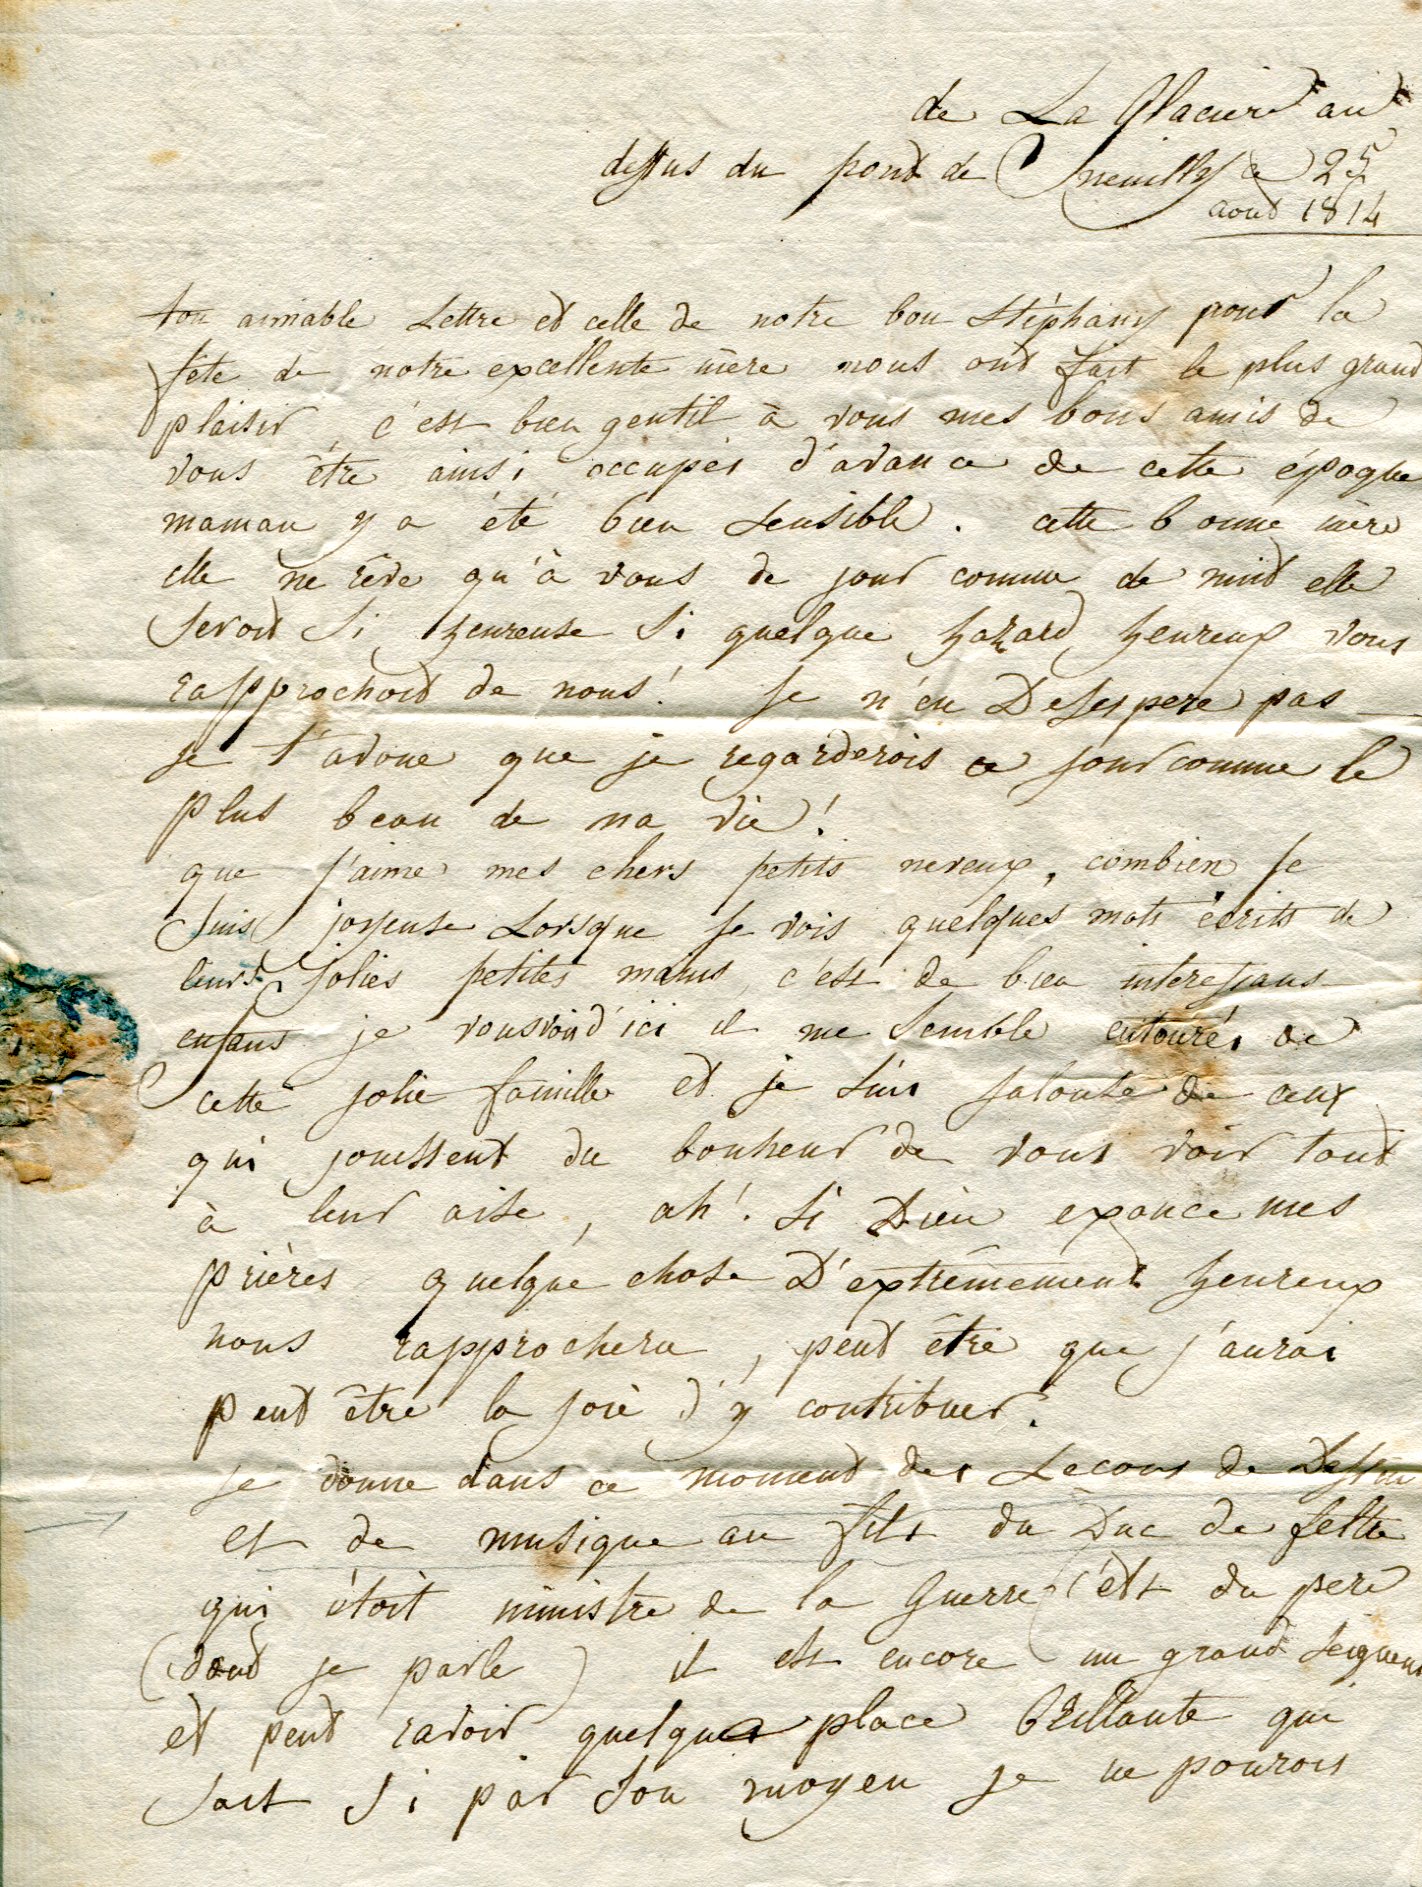 de La Glaciere au
dessus du pont de neuilly ce 25
aout 1814
ton aimable Lettre et celle de notre bon Stéphany pour la
fête de notre excellente mère nous ont fait le plus grand
plaisir, c'est bien gentil à vous mes bons amis de
vous être ainsi occupés d'avance de cette époque
maman y a été bien sensible. cette bonne mère
elle ne rêve qu'à vous de jour comme de nuit elle
seroit si heureuse si quelque hazard heureux vous
rapprochoit de nous! Je n'en Desespere pas
je t'avoue que je regarderois ce jour comme le
plus beau de ma vie!
que j'aime mes chers petits neveux, combien je
suis joyeuse Lorsque je vois quelques mots écrits de
leurs jolies petites mains, c'est de bien interessans
enfans je vous vois d'ici il me semble entourés de
cette jolie famille et je suis jalouse de ceux
qui jouissent du bonheur de vous voir tout
à leur aise, ah! si Dieu exauce mes
prières quelque chose D'extrêmement heureux
nous rapprochera, peut être que j'aurai
peut être la joie d'y contribuer.
je donne dans ce moment des Lecons de Dessin
et de musique au fils du Duc de feltre
qui étoit ministre de la Guerre (c'est du père
(dont je parle) il est encore un grand seigneur
et peut ravoir quelque place brillante qui
sait si par son moyen je ne pourois